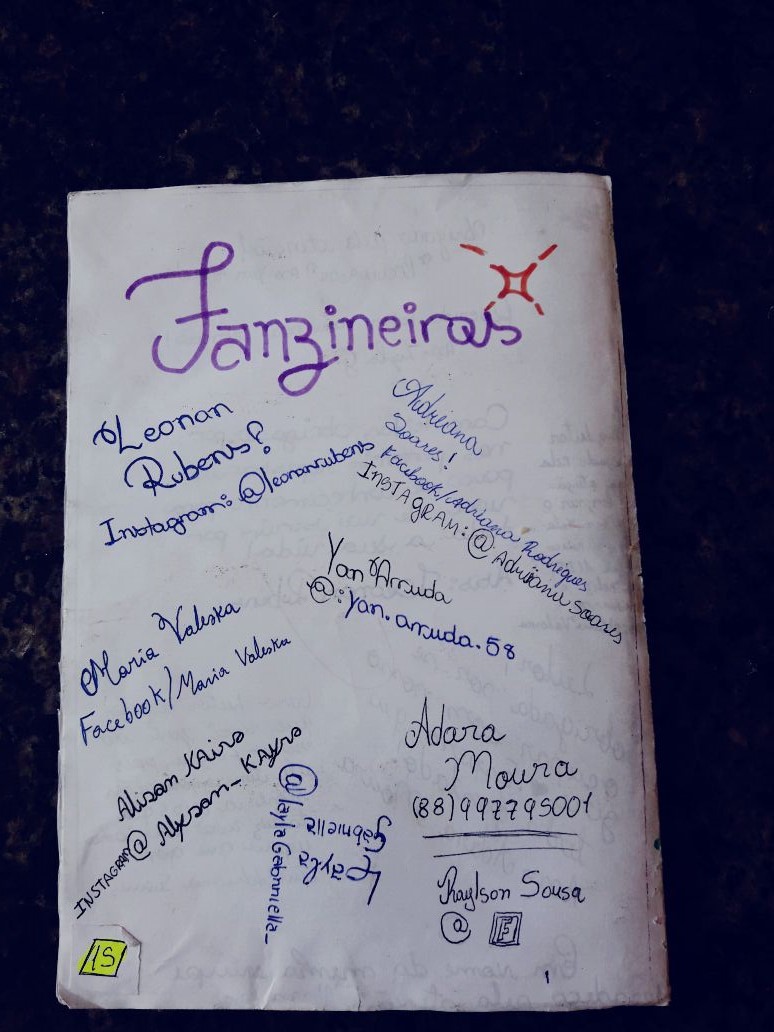 Fanzineiras
Leonan
Rubens?
Instagram: @leonanrubens
Adriana
Soares!
Facebook/Adriana Rodrigues
INSTAGRAM: @Adriana Soares
Yan Arruda
@: yan.arruda.58
Maria Valeska
Facebook/Maria Valeska
Alison KAiro
INSTAGRAM @Alyson_KAyro
Layla
Gabriella
@laylaGabrriella_
Adara
Moura
(88) 997795001
Raylson Sousa
@ F
15